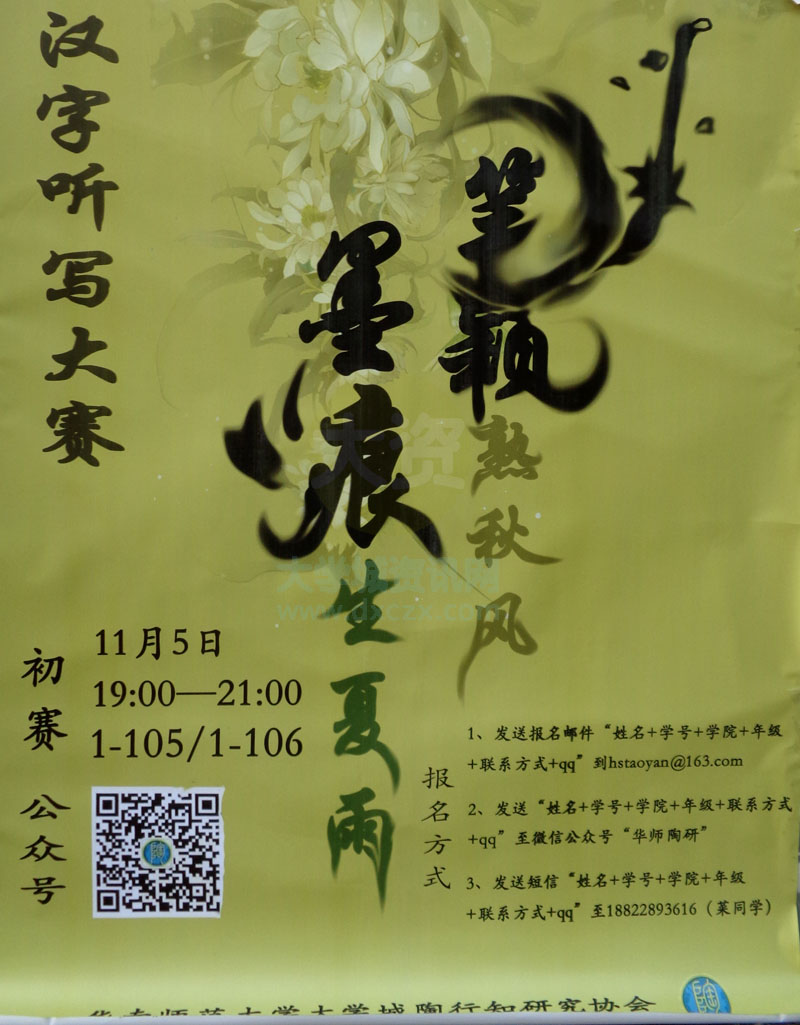 汉字听写大赛
笔颖熟秋风
墨痕生夏雨
初赛
11月5日
19:00—21:00
1-105/1-106
公众号
报名方式
1、发送报名邮件“姓名+学号+学院+年级
+联系方式+qq”到hstaoyan@163.com
2、发送“姓名+学号+学院+年级+联系方式
+qq”至微信公众号“华师陶研”
3、发送短信“姓名+学号+学院+年级
+联系方式+qq”至18822893616（莱同学）
华南师范大学大学城陶行知研究协会
陶
大学城资讯网
www.dxczx.com